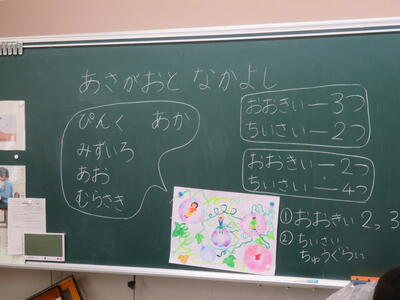 あさがおと なかよし
ぴんく あか
みずいろ
あお
むらさき
おおきい―3つ
ちいさい―2つ
おおきい―2つ
ちいさい―4つ
①おおきい2,3
②ちいさい
ちゅうぐらい